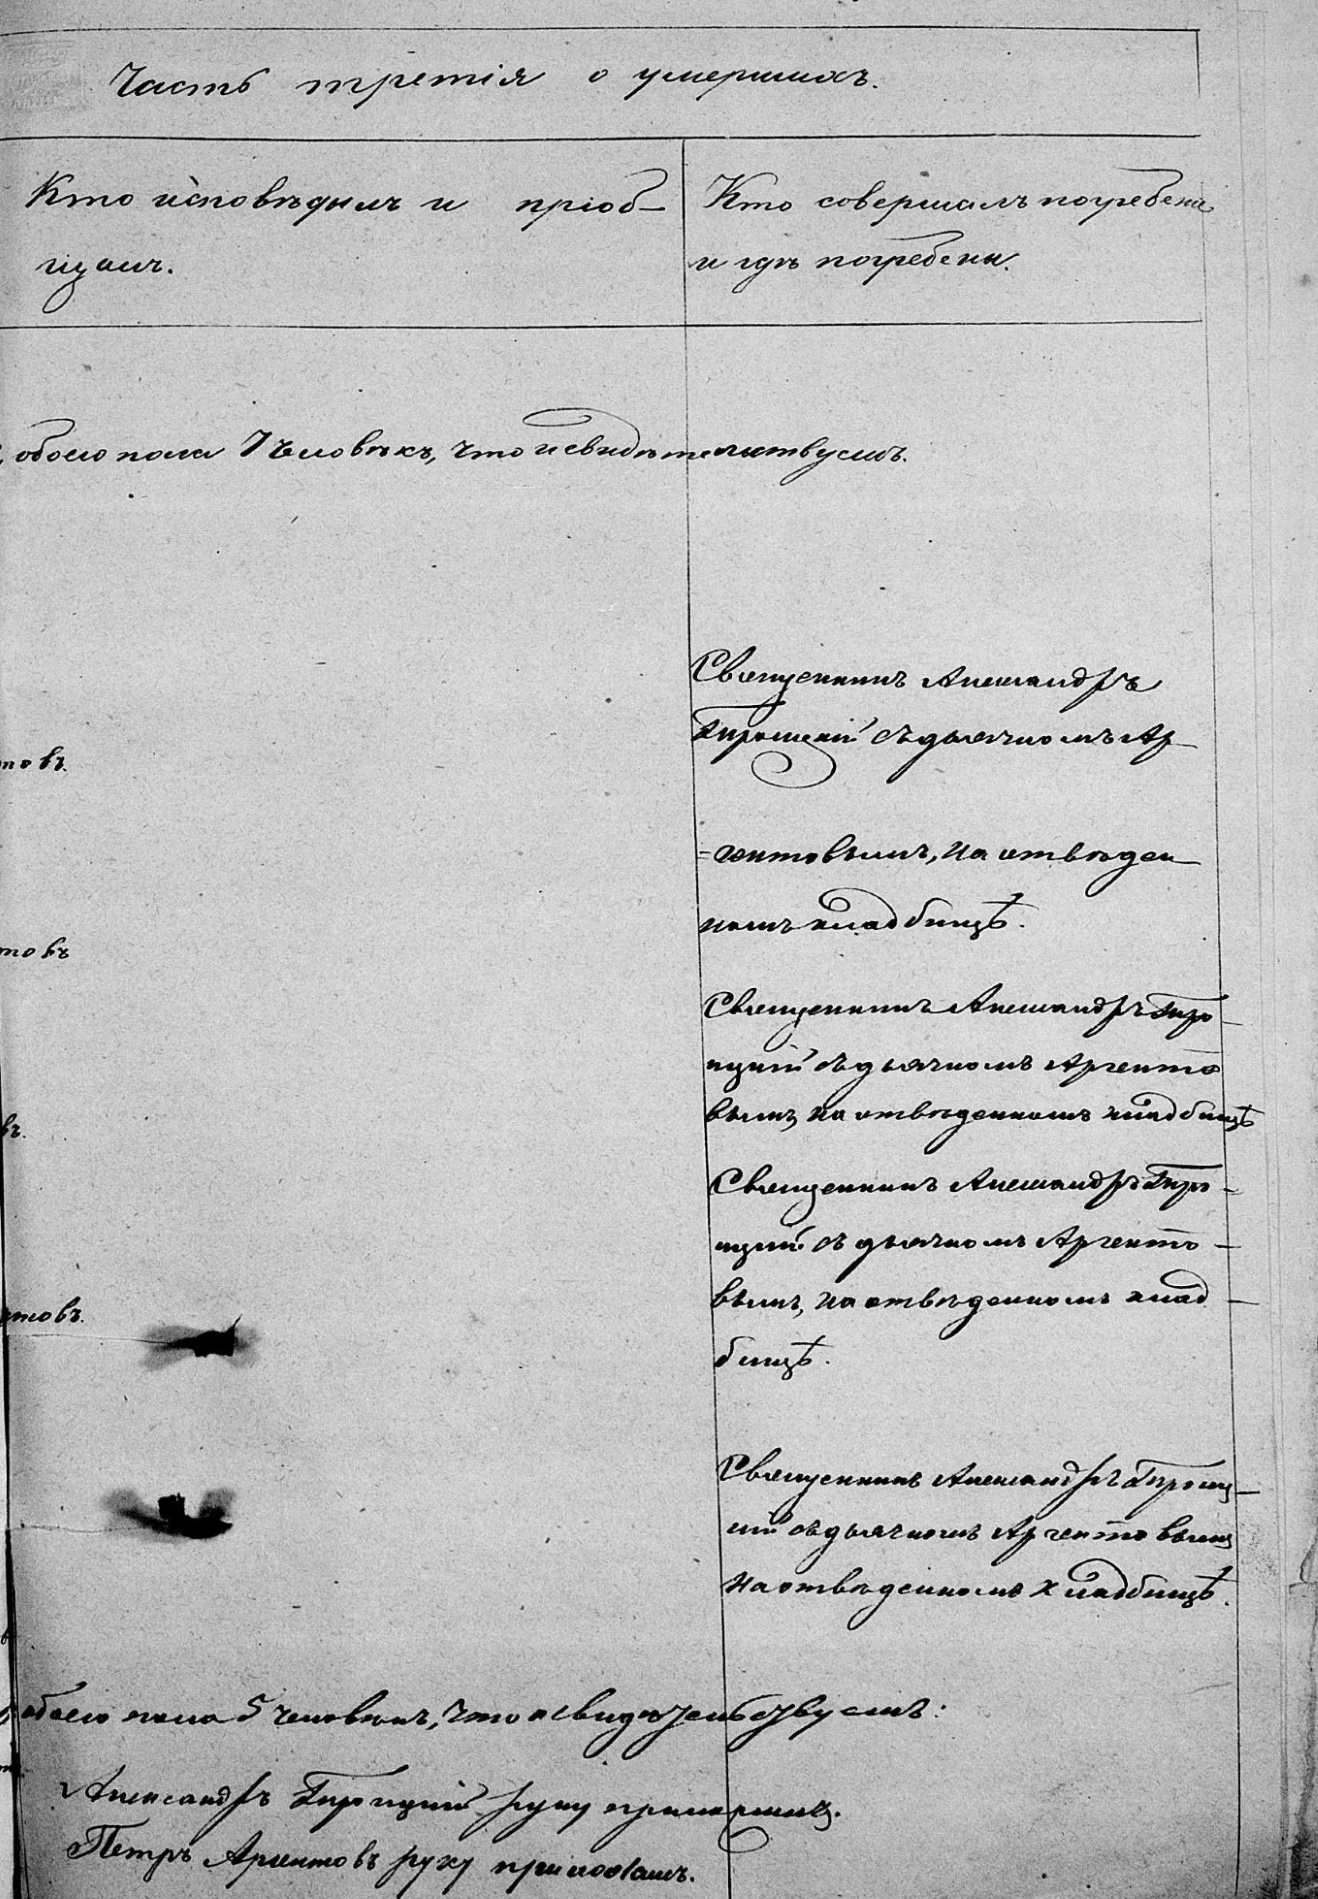 Часть третія о умершихъ.
Кто исповѣдылъ и пріоб-
щалъ.
Кто совершалъ погребеніе
и гдѣ погребены.
обоего пола 7 человѣкъ, что и свидѣтельствуемъ.
Священникъ Александръ
съ дьячкомъ Ар-
товъ.
=гентовымъ, на отвѣден-
номъ кладбищѣ.
товъ
Священникъ Александръ
съ дьячкомъ Арженто
вымъ, на отвѣденномъ кладбищѣ
въ.
Священникъ Александръ
съ дьячкомъ Арженто-
вымъ, на отвѣденномъ клад-
товъ.
бищѣ.
Священникъ Александръ
съ дьячкомъ Арженто вымъ
на отвѣденномъ кладбищѣ.
обоего пола 5 человѣкъ, что и свидѣтельствуемъ:
Александръ руку приложилъ.
Петръ Арженто въ руку приложилъ.